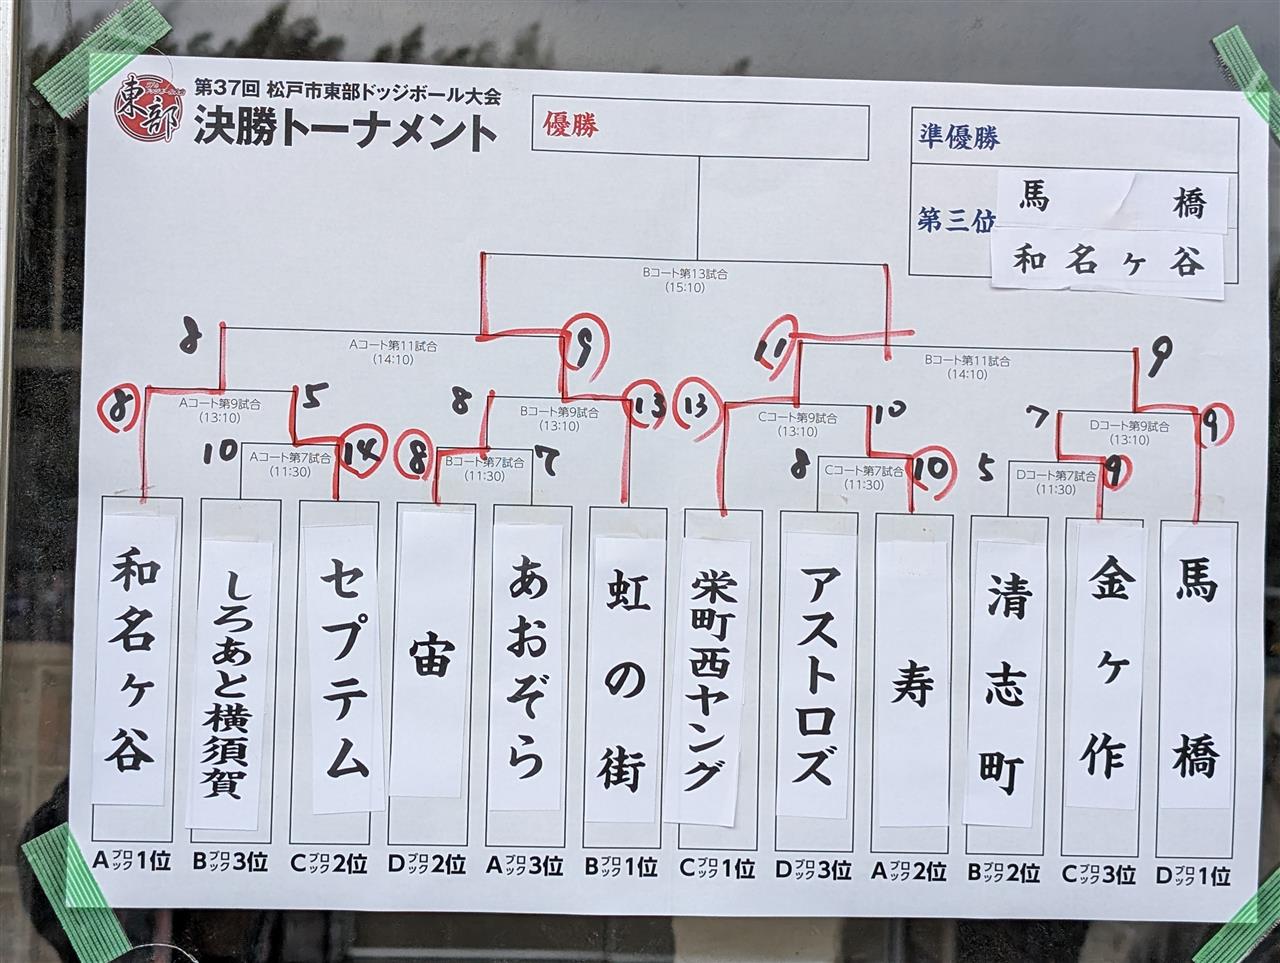 東部
第37回 松戸市東部ドッジボール大会
決勝トーナメント
優勝
準優勝
第三位
馬橋
和名ヶ谷
Bコート第13試合
(15:10)
8
Aコート第11試合
(14:10)
9
11
Bコート第11試合
(14:10)
9
8
Aコート第9試合
(13:10)
5
8
Bコート第9試合
(13:10)
13
13
Cコート第9試合
(13:10)
10
7
Dコート第9試合
(13:10)
9
10
Aコート第7試合
(11:30)
14
8
Bコート第7試合
(11:30)
7
8
Cコート第7試合
(11:30)
10
5
Dコート第7試合
(11:30)
9
和名ヶ谷
しろあと横須賀
セプテム
宙
あおぞら
虹の街
栄町西ヤング
アストロズ
寿
清志町
金ヶ作
馬橋
Aブロック1位
Bブロック3位
Cブロック2位
Dブロック2位
Aブロック3位
Bブロック1位
Cブロック1位
Dブロック3位
Aブロック2位
Bブロック2位
Cブロック3位
Dブロック1位